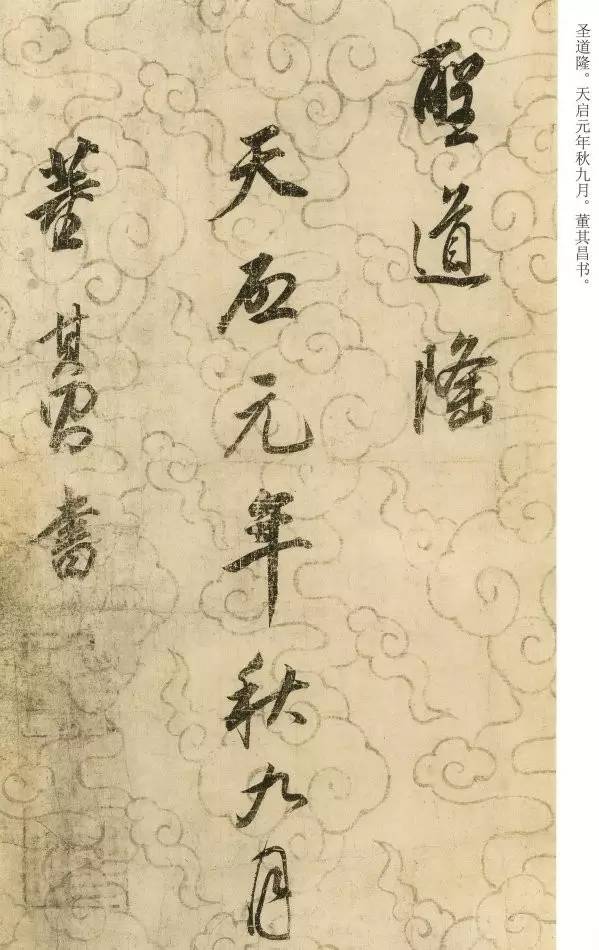 圣道隆。天启元年秋九月。董其昌书。
聖道隆
天啓元年秋九月
董其昌書